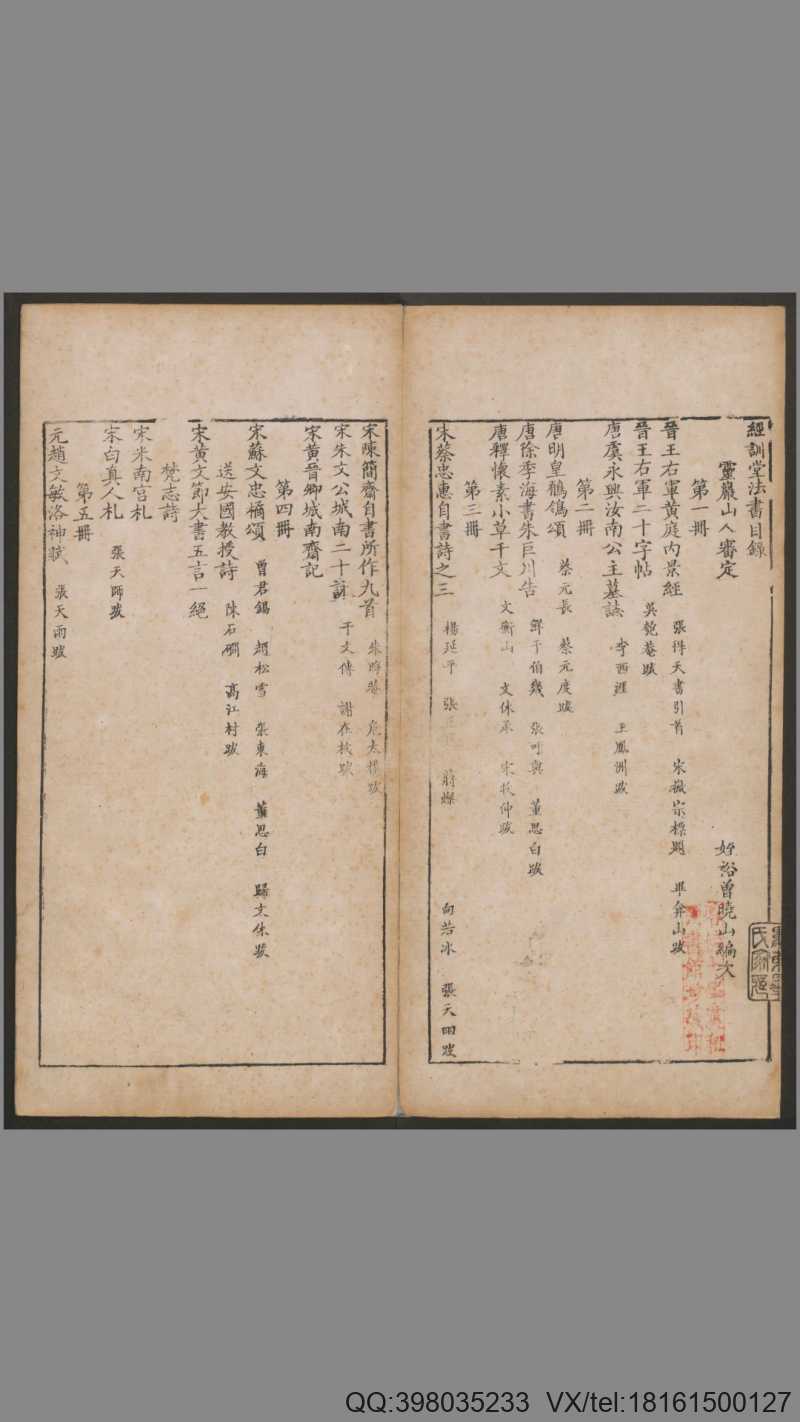 經訓堂法書目錄
靈巖山人審定 好裕曾曉山編次
第一冊
晉王右軍黃庭內景經 張得天書引首 宋徽宗標題 畢弇山跋
晉王右軍二十字帖 吳匏菴跋
唐虞永興汝南公主墓誌 李西涯 王鳳洲跋
第二冊
唐明皇鶺鴒頌 蔡元長 蔡元度跋
唐徐季海書朱巨川告 鮮于伯幾 張可與 董思白跋
唐釋懷素小草千文 文衡山 文休承 宋牧仲跋
第三冊
宋蔡忠惠自書詩之三 楊延平 張 蔣燦 向若冰 張天雨跋
宋陳簡齋自書所作九首 朱晦菴 危太樸跋
宋朱文公城南二十詠 干文傳 謝在杭跋
宋黃晉卿城南齋記
第四冊
宋蘇文忠橘頌 曾君錫 趙松雪 張東海 董思白 歸文休跋
送安國教授詩 陳石磵 高江村跋
宋黃文節大書五言一絕
梵志詩
宋米南宮札
宋白真人札 張天師跋
第五冊
元趙文敏洛神賦 張天雨跋
QQ:398035233 VX/tel:18161500127